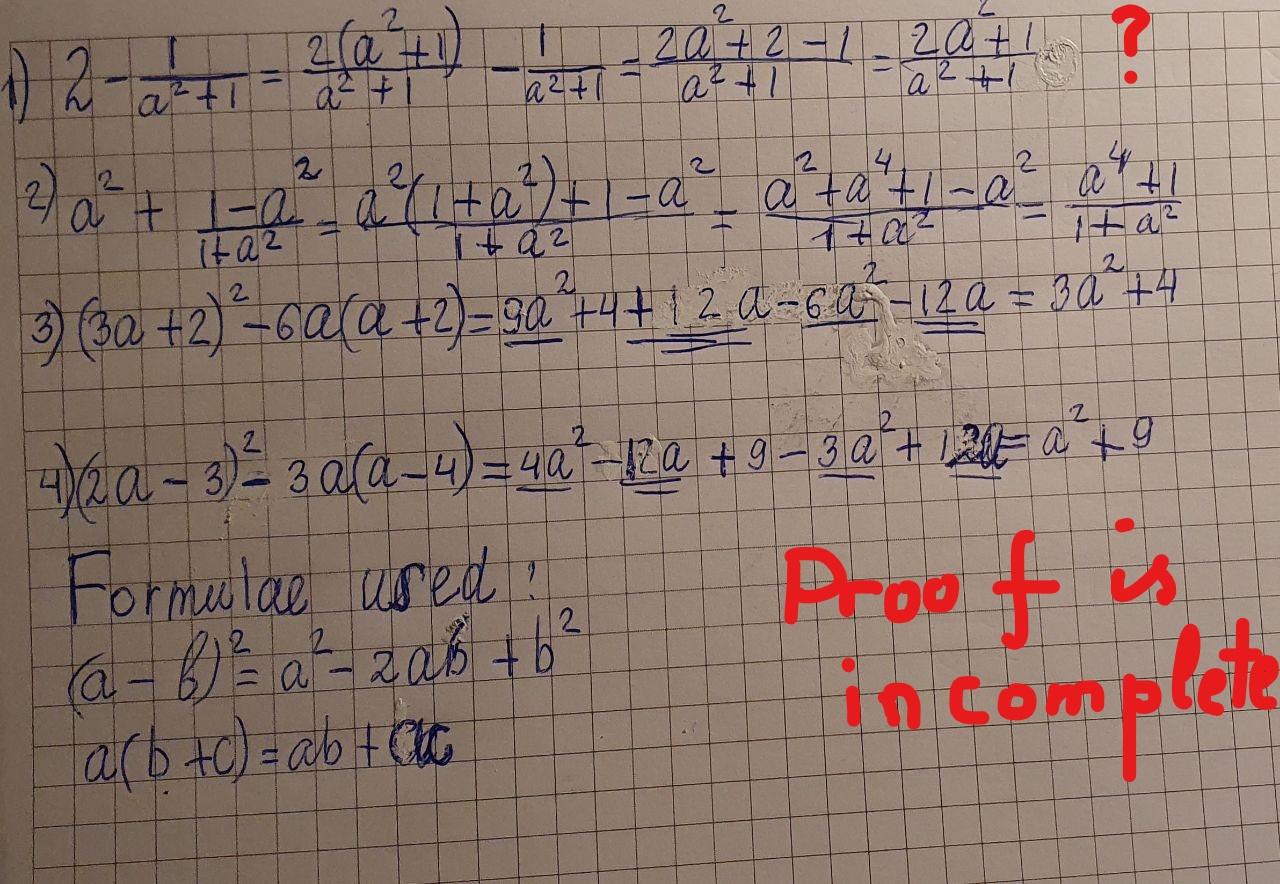 1) 2 - 1/(a²+1) = 2(a²+1)/(a²+1) - 1/(a²+1) = (2a²+2-1)/(a²+1) = (2a²+1)/(a²+1) ?
2) a² + (1-a²)/(1+a²) = (a²(1+a²)+1-a²)/(1+a²) = (a²+a⁴+1-a²)/(1+a²) = (a⁴+1)/(1+a²)
3) (3a+2)² - 6a(a+2) = 9a²+4+12a-6a²-12a = 3a²+4
4) (2a-3)² - 3a(a-4) = 4a²-12a+9-3a²+12a = a²+9
Formulae used:
(a-b)² = a²-2ab+b²
a(b+c) = ab+ac
Proof is
incomplete